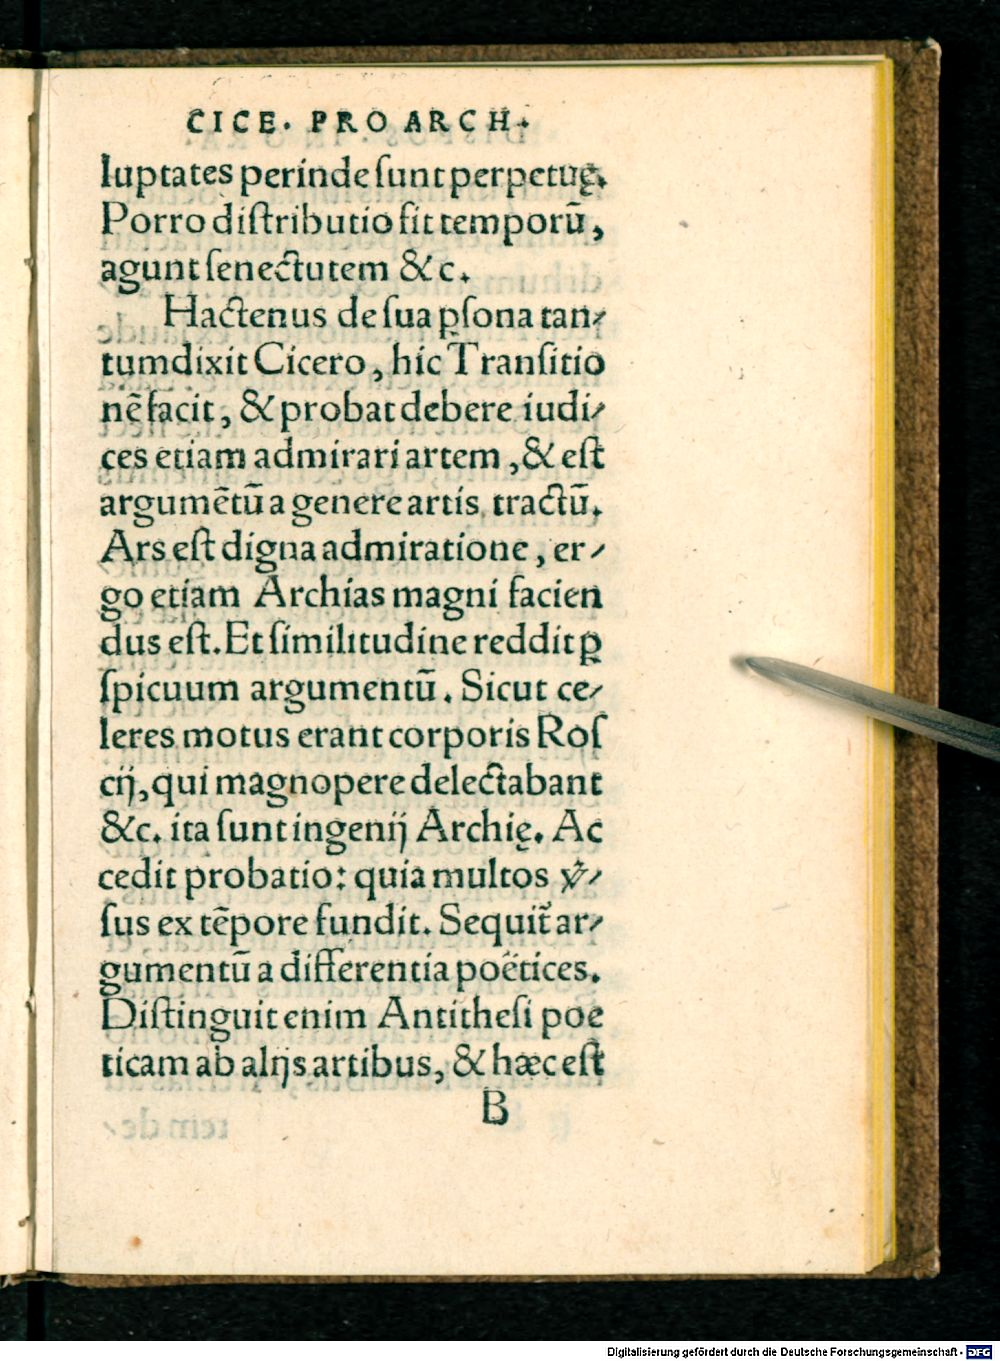 CICE. PRO ARCH.
luptates perinde ſunt perpetuę.
Porro diſtributio fit temporū,
agunt ſenectutem &c.
Hactenus de ſua ꝑſona tan-
tum dixit Cicero, hic Tranſitio
nē facit, & probat debere iudi-
ces etiam admirari artem, & eſt
argumētū a genere artis tractū.
Ars eſt digna admiratione, er-
go etiam Archias magni facien
dus eſt. Et ſimilitudine reddit ꝑ
ſpicuum argumentū. Sicut ce-
leres motus erant corporis Roſ
cij, qui magnopere delectabant
&c. ita ſunt ingenij Archię. Ac
cedit probatio: quia multos v̉-
ſus ex tēpore fundit. Sequit̃ ar-
gumentū a differentia poëtices.
Diſtinguit enim Antitheſi poe
ticam ab alijs artibus, & hæc eſt
B
Digitalisierung gefördert durch die Deutsche Forschungsgemeinschaft - DFG